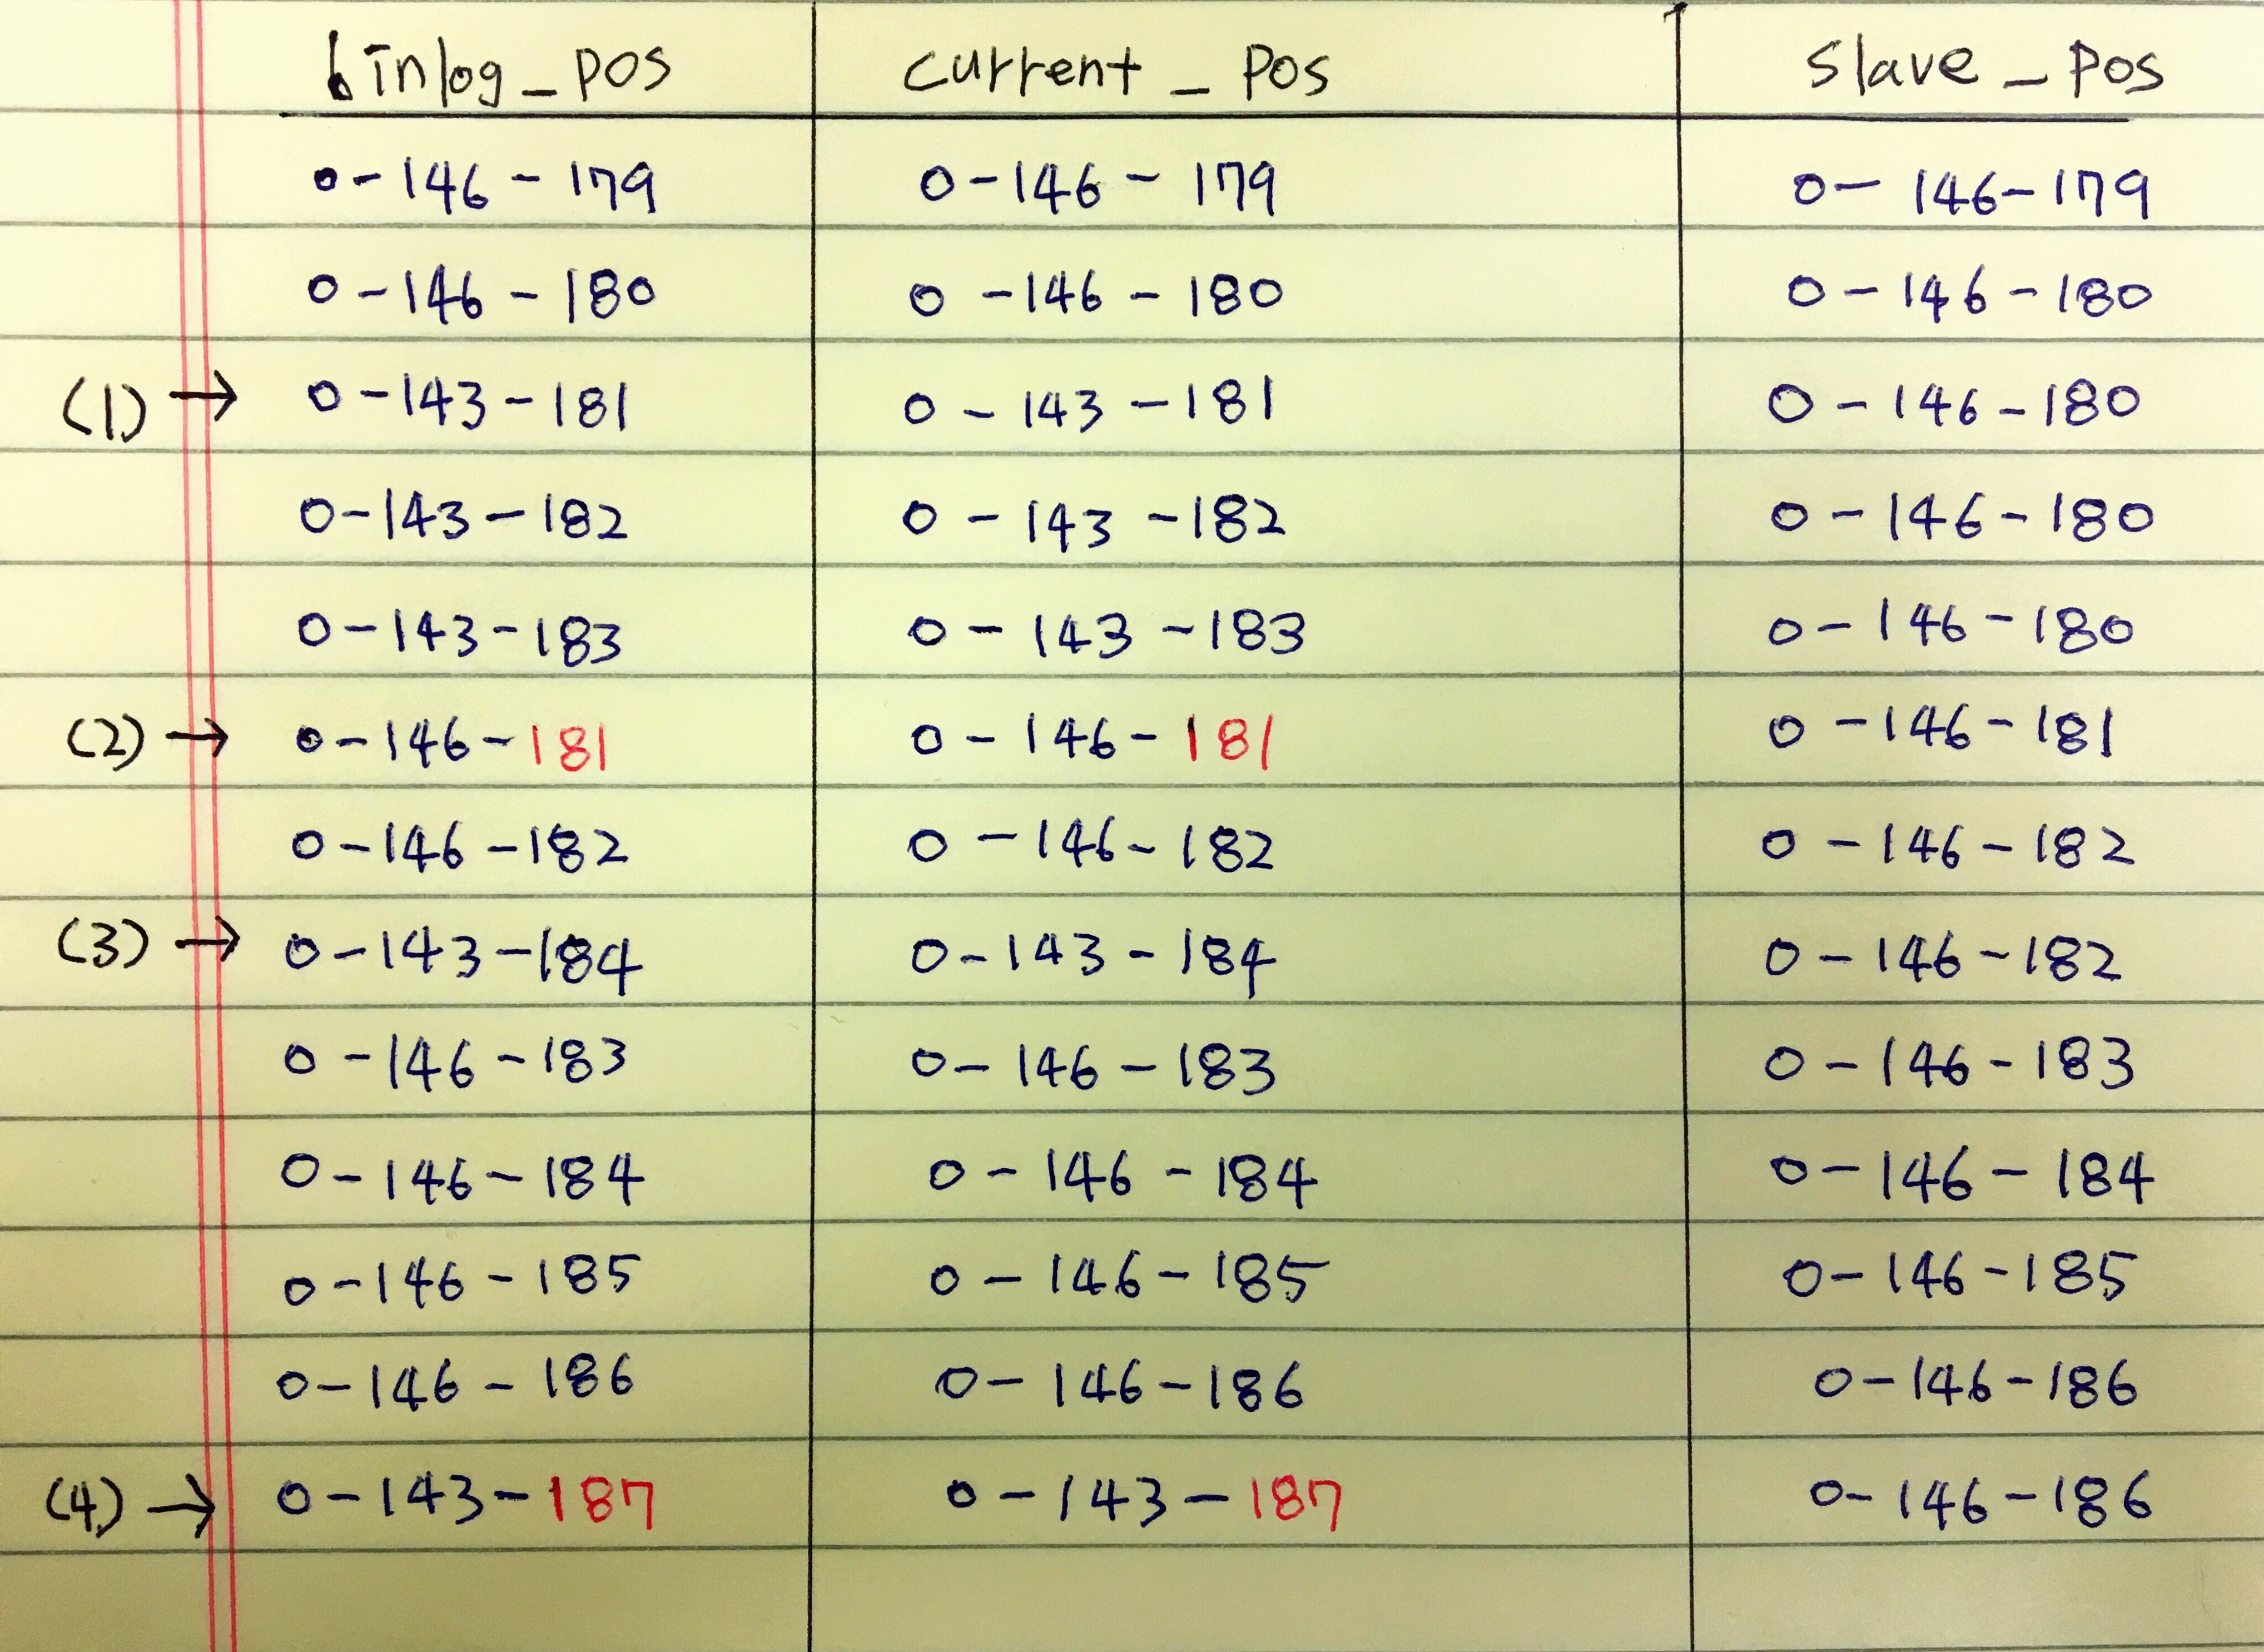 binlog_pos current_pos slave_pos
0-146-179 0-146-179 0-146-179
0-146-180 0-146-180 0-146-180
(1) → 0-143-181 0-143-181 0-146-180
0-143-182 0-143-182 0-146-180
0-143-183 0-143-183 0-146-180
(2) → 0-146-181 0-146-181 0-146-181
0-146-182 0-146-182 0-146-182
(3) → 0-143-184 0-143-184 0-146-182
0-146-183 0-146-183 0-146-183
0-146-184 0-146-184 0-146-184
0-146-185 0-146-185 0-146-185
0-146-186 0-146-186 0-146-186
(4) → 0-143-187 0-143-187 0-146-186